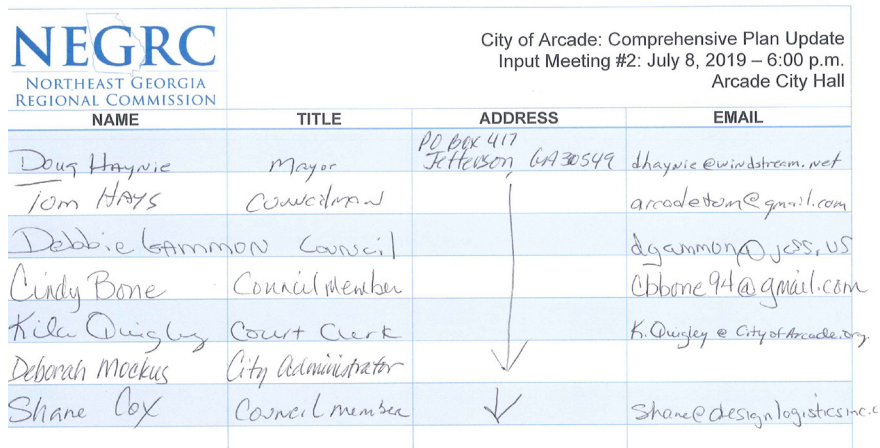 NEGRC
NORTHEAST GEORGIA
REGIONAL COMMISSION
City of Arcade: Comprehensive Plan Update
Input Meeting #2: July 8, 2019 – 6:00 p.m.
Arcade City Hall
NAME TITLE ADDRESS EMAIL
Doug Haynie Mayor PO Box 417 Jefferson, GA 30549 dhaynie@windstream.net
Tom HAYS Councilman arcadetom@gmail.com
Debbie GAMMON Council dgammon@jcss.us
Cindy Bone Council Member cbbone94@gmail.com
Kila Quigley Court Clerk K.Quigley@CityofArcade.org
Deborah Mockus City Administrator
Shane Cox Council member Shane@designlogisticsinc.c